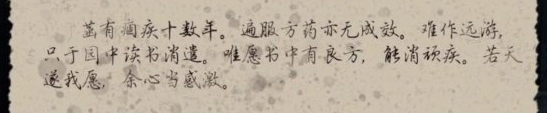 盖有痼疾十数年。遍服方药亦无成效。难作远游，
只于园中读书消遣。唯愿书中有良方，能消顽疾。若天
遂我愿，余心当感激。